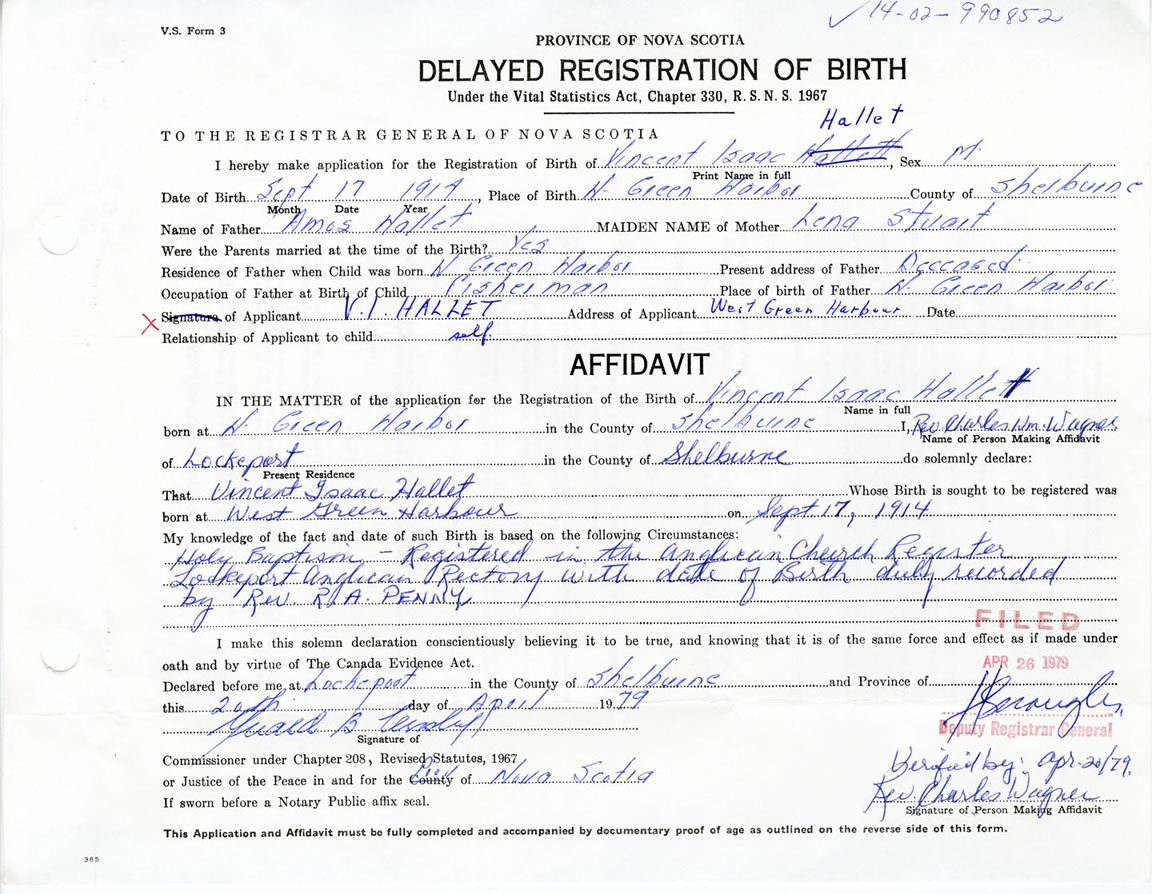 V.S. Form 3
✓ 14-02-990852
PROVINCE OF NOVA SCOTIA
DELAYED REGISTRATION OF BIRTH
Under the Vital Statistics Act, Chapter 330, R. S. N. S. 1967
TO THE REGISTRAR GENERAL OF NOVA SCOTIA
Hallet
I hereby make application for the Registration of Birth of Vincent Isaac Hallett, Sex M.
Print Name in full
Date of Birth Sept 17 1914, Place of Birth W Green Harbor County of Shelburne
Month Date Year
Name of Father Amos Hallet MAIDEN NAME of Mother Lena Stuart
Were the Parents married at the time of the Birth? Yes
Residence of Father when Child was born W Green Harbor Present address of Father Deceased
Occupation of Father at Birth of Child Fisherman Place of birth of Father W Green Harbor
X Signature of Applicant V. I. HALLET Address of Applicant West Green Harbour Date
Relationship of Applicant to child self.
AFFIDAVIT
IN THE MATTER of the application for the Registration of the Birth of Vincent Isaac Hallett
Name in full
born at W. Green Harbor in the County of Shelburne I, Rev. Charles Wm. Wagner
Name of Person Making Affidavit
of Lockeport in the County of Shelburne do solemnly declare:
Present Residence
That Vincent Isaac Hallet Whose Birth is sought to be registered was
born at West Green Harbour on Sept 17, 1914
My knowledge of the fact and date of such Birth is based on the following Circumstances:
Holy Baptism - Registered in the Anglican Church Register
Lockeport Anglican Rectory with date of Birth duly recorded
by Rev R. A. PENNY
FILED
I make this solemn declaration conscientiously believing it to be true, and knowing that it is of the same force and effect as if made under
oath and by virtue of The Canada Evidence Act.
APR 26 1979
Declared before me at Lockeport in the County of Shelburne and Province of
this 20th day of April 1979
Deputy Registrar General
Signature of
Commissioner under Chapter 208, Revised Statutes, 1967
or Justice of the Peace in and for the County of Nova Scotia
Verified by: Apr. 20/79.
Rev. Charles Wagner
If sworn before a Notary Public affix seal.
Signature of Person Making Affidavit
This Application and Affidavit must be fully completed and accompanied by documentary proof of age as outlined on the reverse side of this form.
385